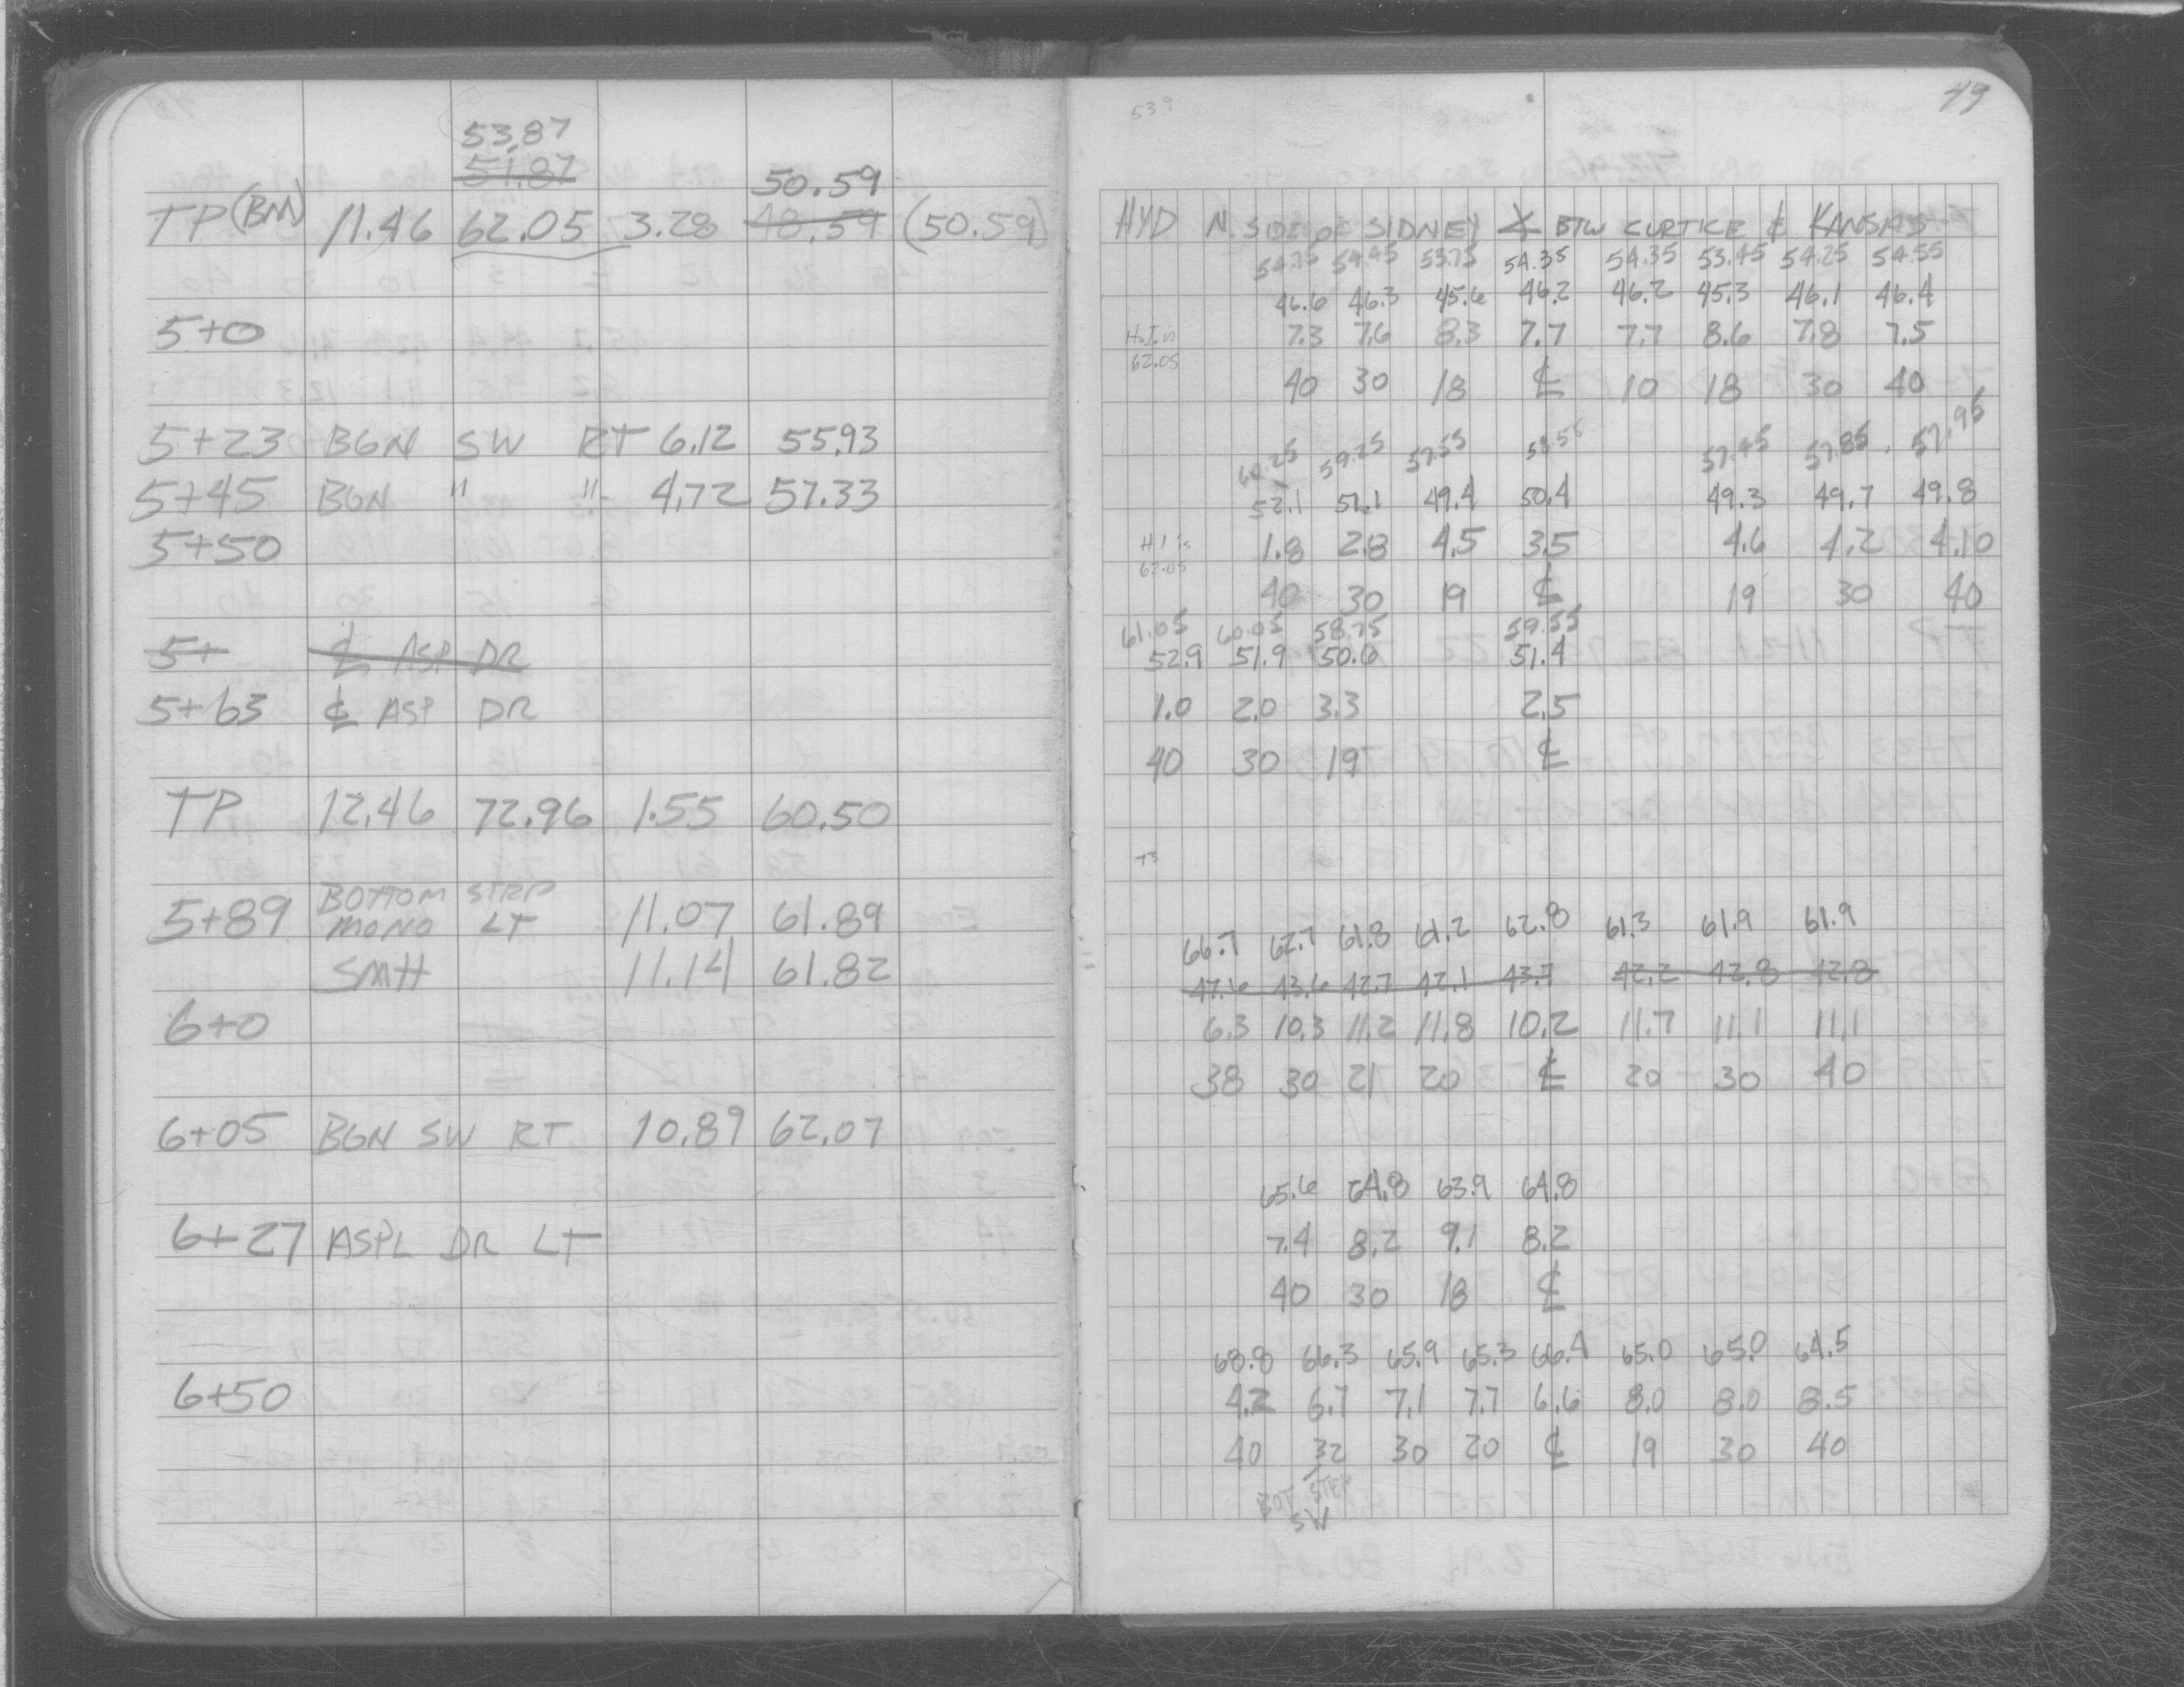 53.87
51.87
50.59
TP (BM) 11.46 62.05 3.28 48.59 (50.59)
5+0
5+23 BGN SW RT 6.12 55.93
5+45 BGN " " 4.72 57.33
5+50
5+ ℄ ASP DR
5+63 ℄ ASP DR
TP 12.46 72.96 1.55 60.50
5+89 BOTTOM STEP
MONO LT 11.07 61.89
SMH 11.14 61.82
6+0
6+05 BGN SW RT 10.89 62.07
6+27 ASPL DR LT
6+50
49
53.9
HYD N. SIDE OF SIDNEY BTW CURTICE & KANSAS
54.75 54.45 53.75 54.35 54.35 53.45 54.25 54.55
46.6 46.3 45.6 46.2 46.2 45.3 46.1 46.4
H.I. is 7.3 7.6 8.3 7.7 7.7 8.6 7.8 7.5
62.05
40 30 18 ℄ 10 18 30 40
60.25 59.25 57.55 58.55 57.45 57.85 57.95
52.1 51.1 49.4 50.4 49.3 49.7 49.8
H I is 1.8 2.8 4.5 3.5 4.6 4.2 4.10
62.05
40 30 19 ℄ 19 30 40
61.05 60.05 58.75 59.55
52.9 51.9 50.6 51.4
1.0 2.0 3.3 2.5
40 30 19 ℄
73
66.7 62.7 61.8 61.2 62.8 61.3 61.9 61.9
47.6 43.6 42.7 42.1 43.7 42.2 42.8 42.8
6.3 10.3 11.2 11.8 10.2 11.7 11.1 11.1
38 30 21 20 ℄ 20 30 40
65.6 64.8 63.9 64.8
7.4 8.2 9.1 8.2
40 30 18 ℄
68.8 66.3 65.9 65.3 66.4 65.0 65.0 64.5
4.2 6.7 7.1 7.7 6.6 8.0 8.0 8.5
40 32 30 20 ℄ 19 30 40
BOT STEP
SW